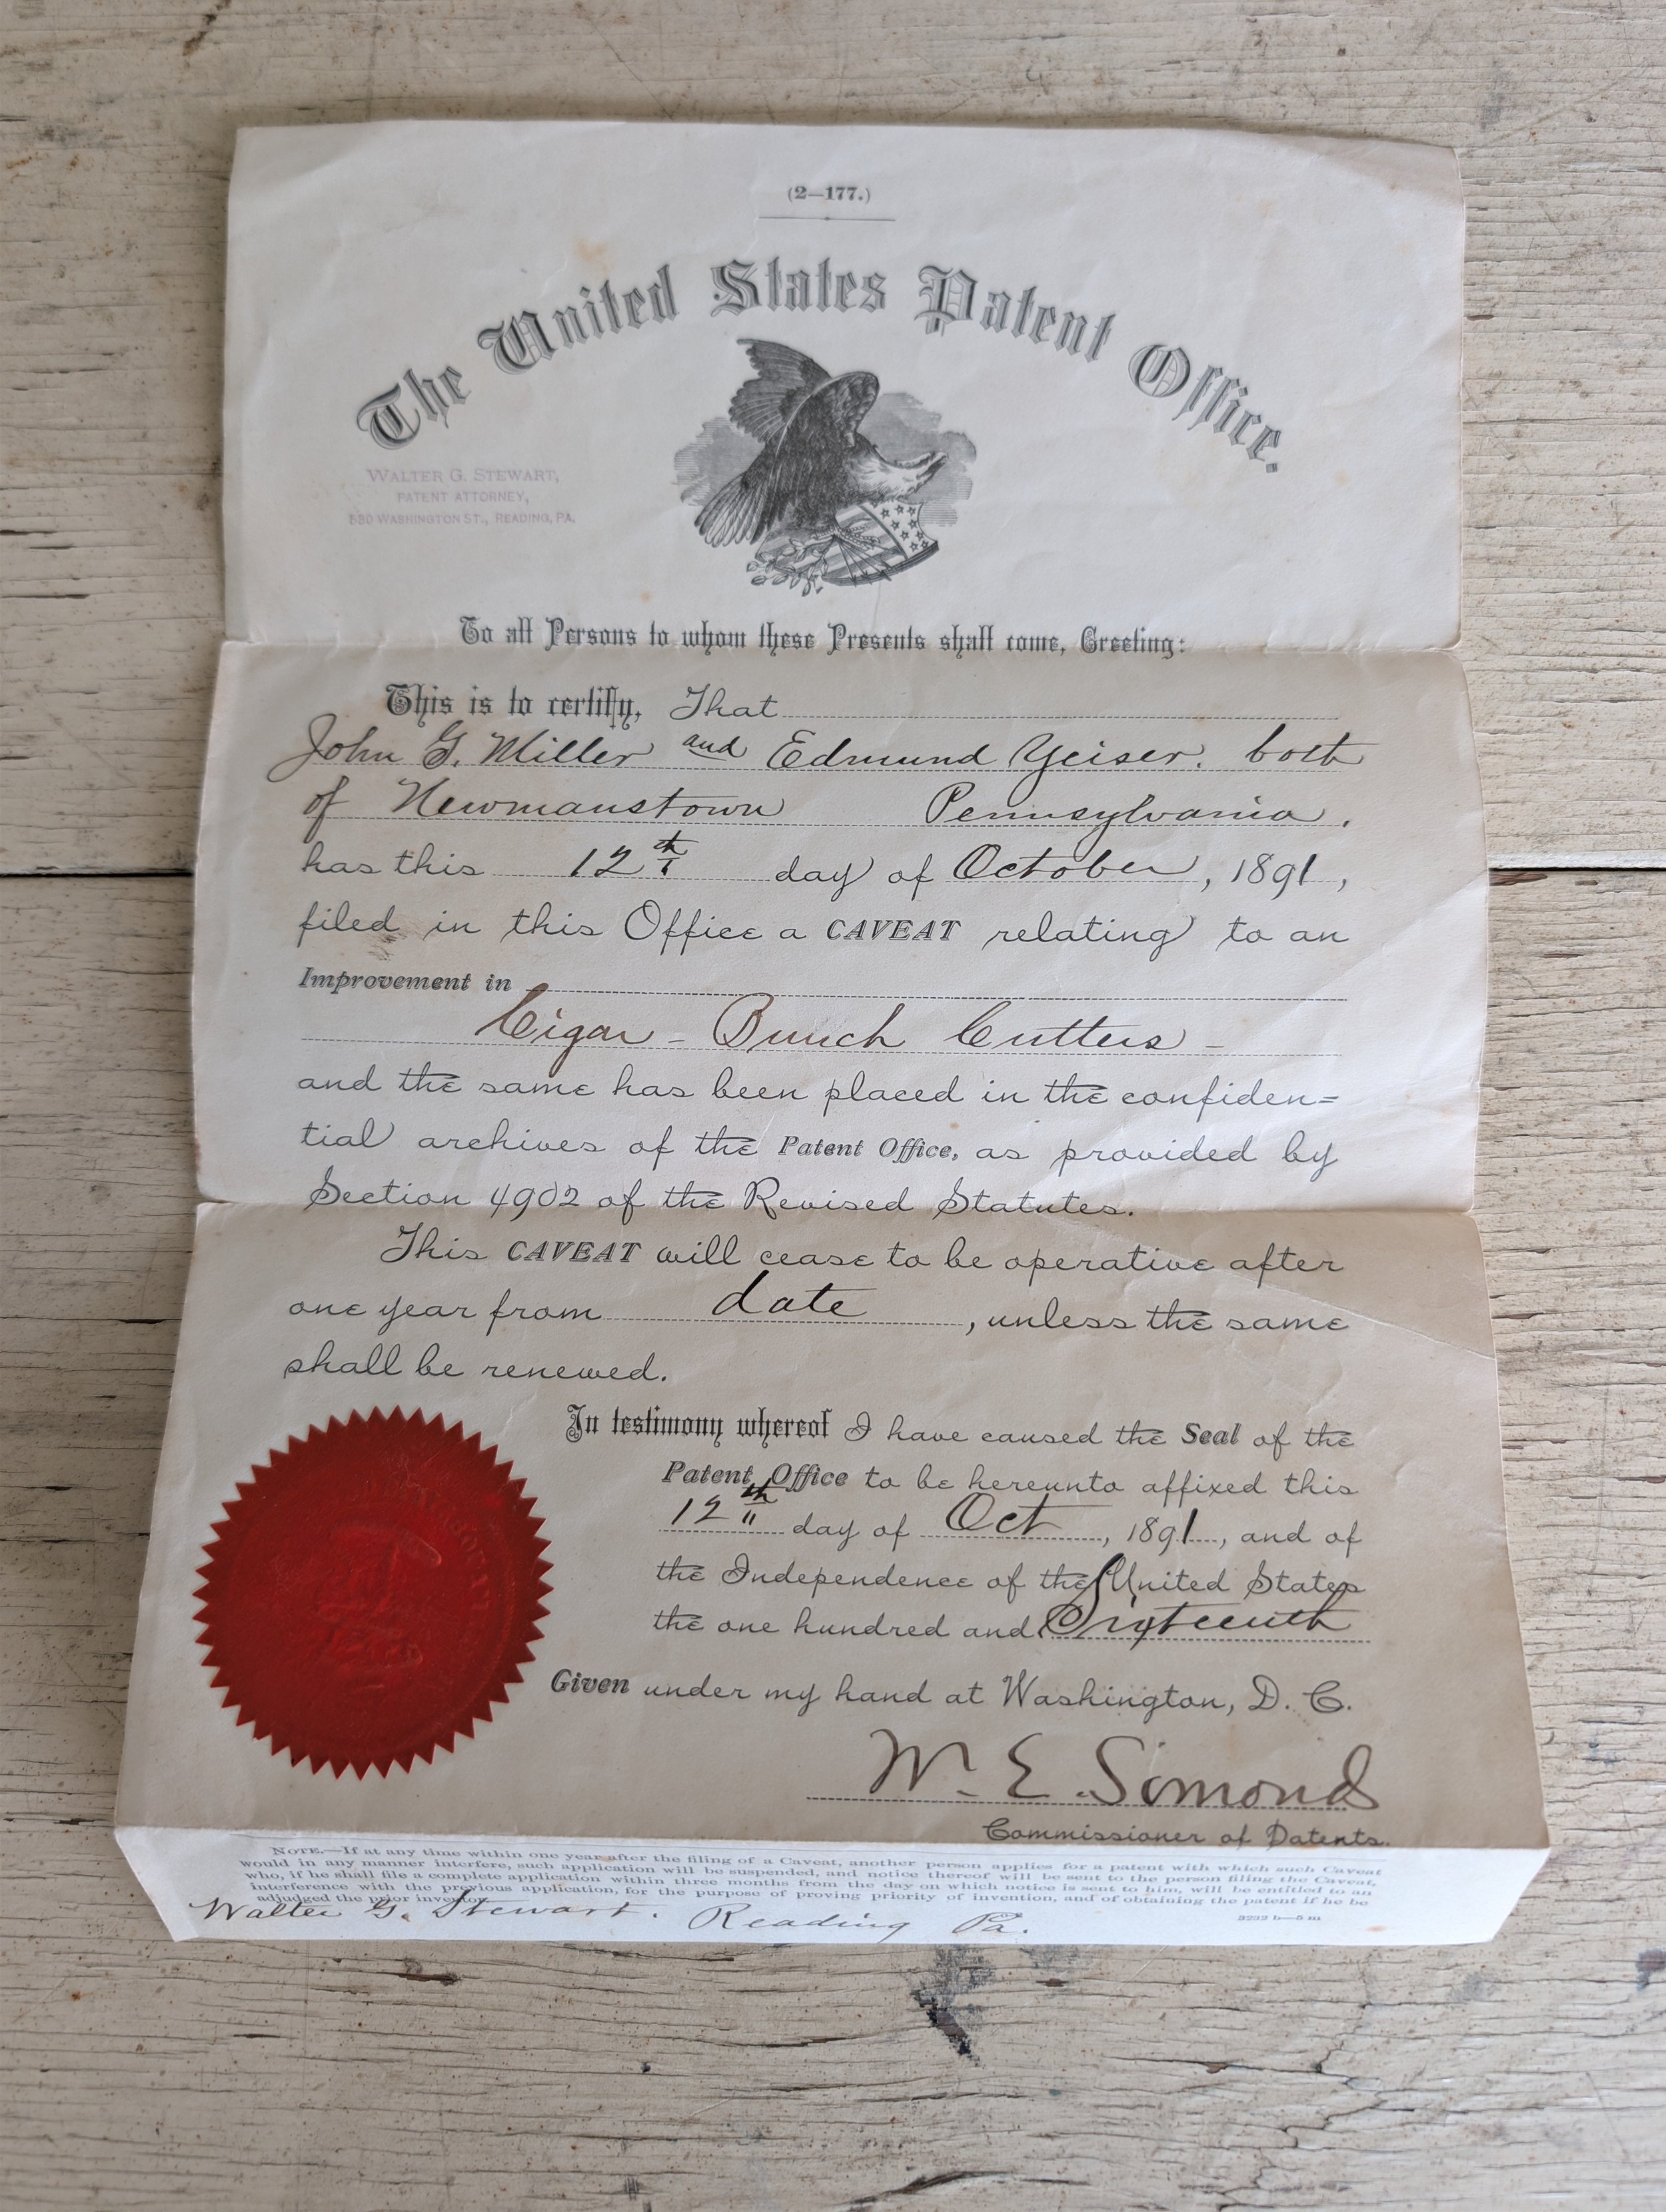 (2—177.)
The United States Patent Office.
WALTER G. STEWART,
PATENT ATTORNEY,
WASHINGTON ST., READING, PA.
To all Persons to whom these Presents shall come, Greeting:
This is to certify, That
John G. Miller and Edmund Yeiser. both
of Newmanstown Pennsylvania.
has this 12th day of October, 1891,
filed in this Office a CAVEAT relating to an
Improvement in
Cigar - Bunch Cutters -
and the same has been placed in the confiden=
tial archives of the Patent Office, as provided by
Section 4902 of the Revised Statutes.
This CAVEAT will cease to be operative after
one year from date, unless the same
shall be renewed.
In testimony whereof I have caused the Seal of the
Patent Office to be hereunto affixed this
12th day of Oct, 1891, and of
the Independence of the United States
the one hundred and Sixteenth
Given under my hand at Washington, D. C.
W. E. Simond
Commissioner of Patents.
NOTE.—If at any time within one year after the filing of a Caveat, another person applies for a patent with which such Caveat
would in any manner interfere, such application will be suspended, and notice thereof will be sent to the person filing the Caveat,
who, if he shall file a complete application within three months from the day on which notice is sent to him, will be entitled to an
interference with the previous application, for the purpose of proving priority of invention, and of obtaining the patent if he be
adjudged the prior inventor.
3232 b—5 m
Walter G. Stewart. Reading Pa.